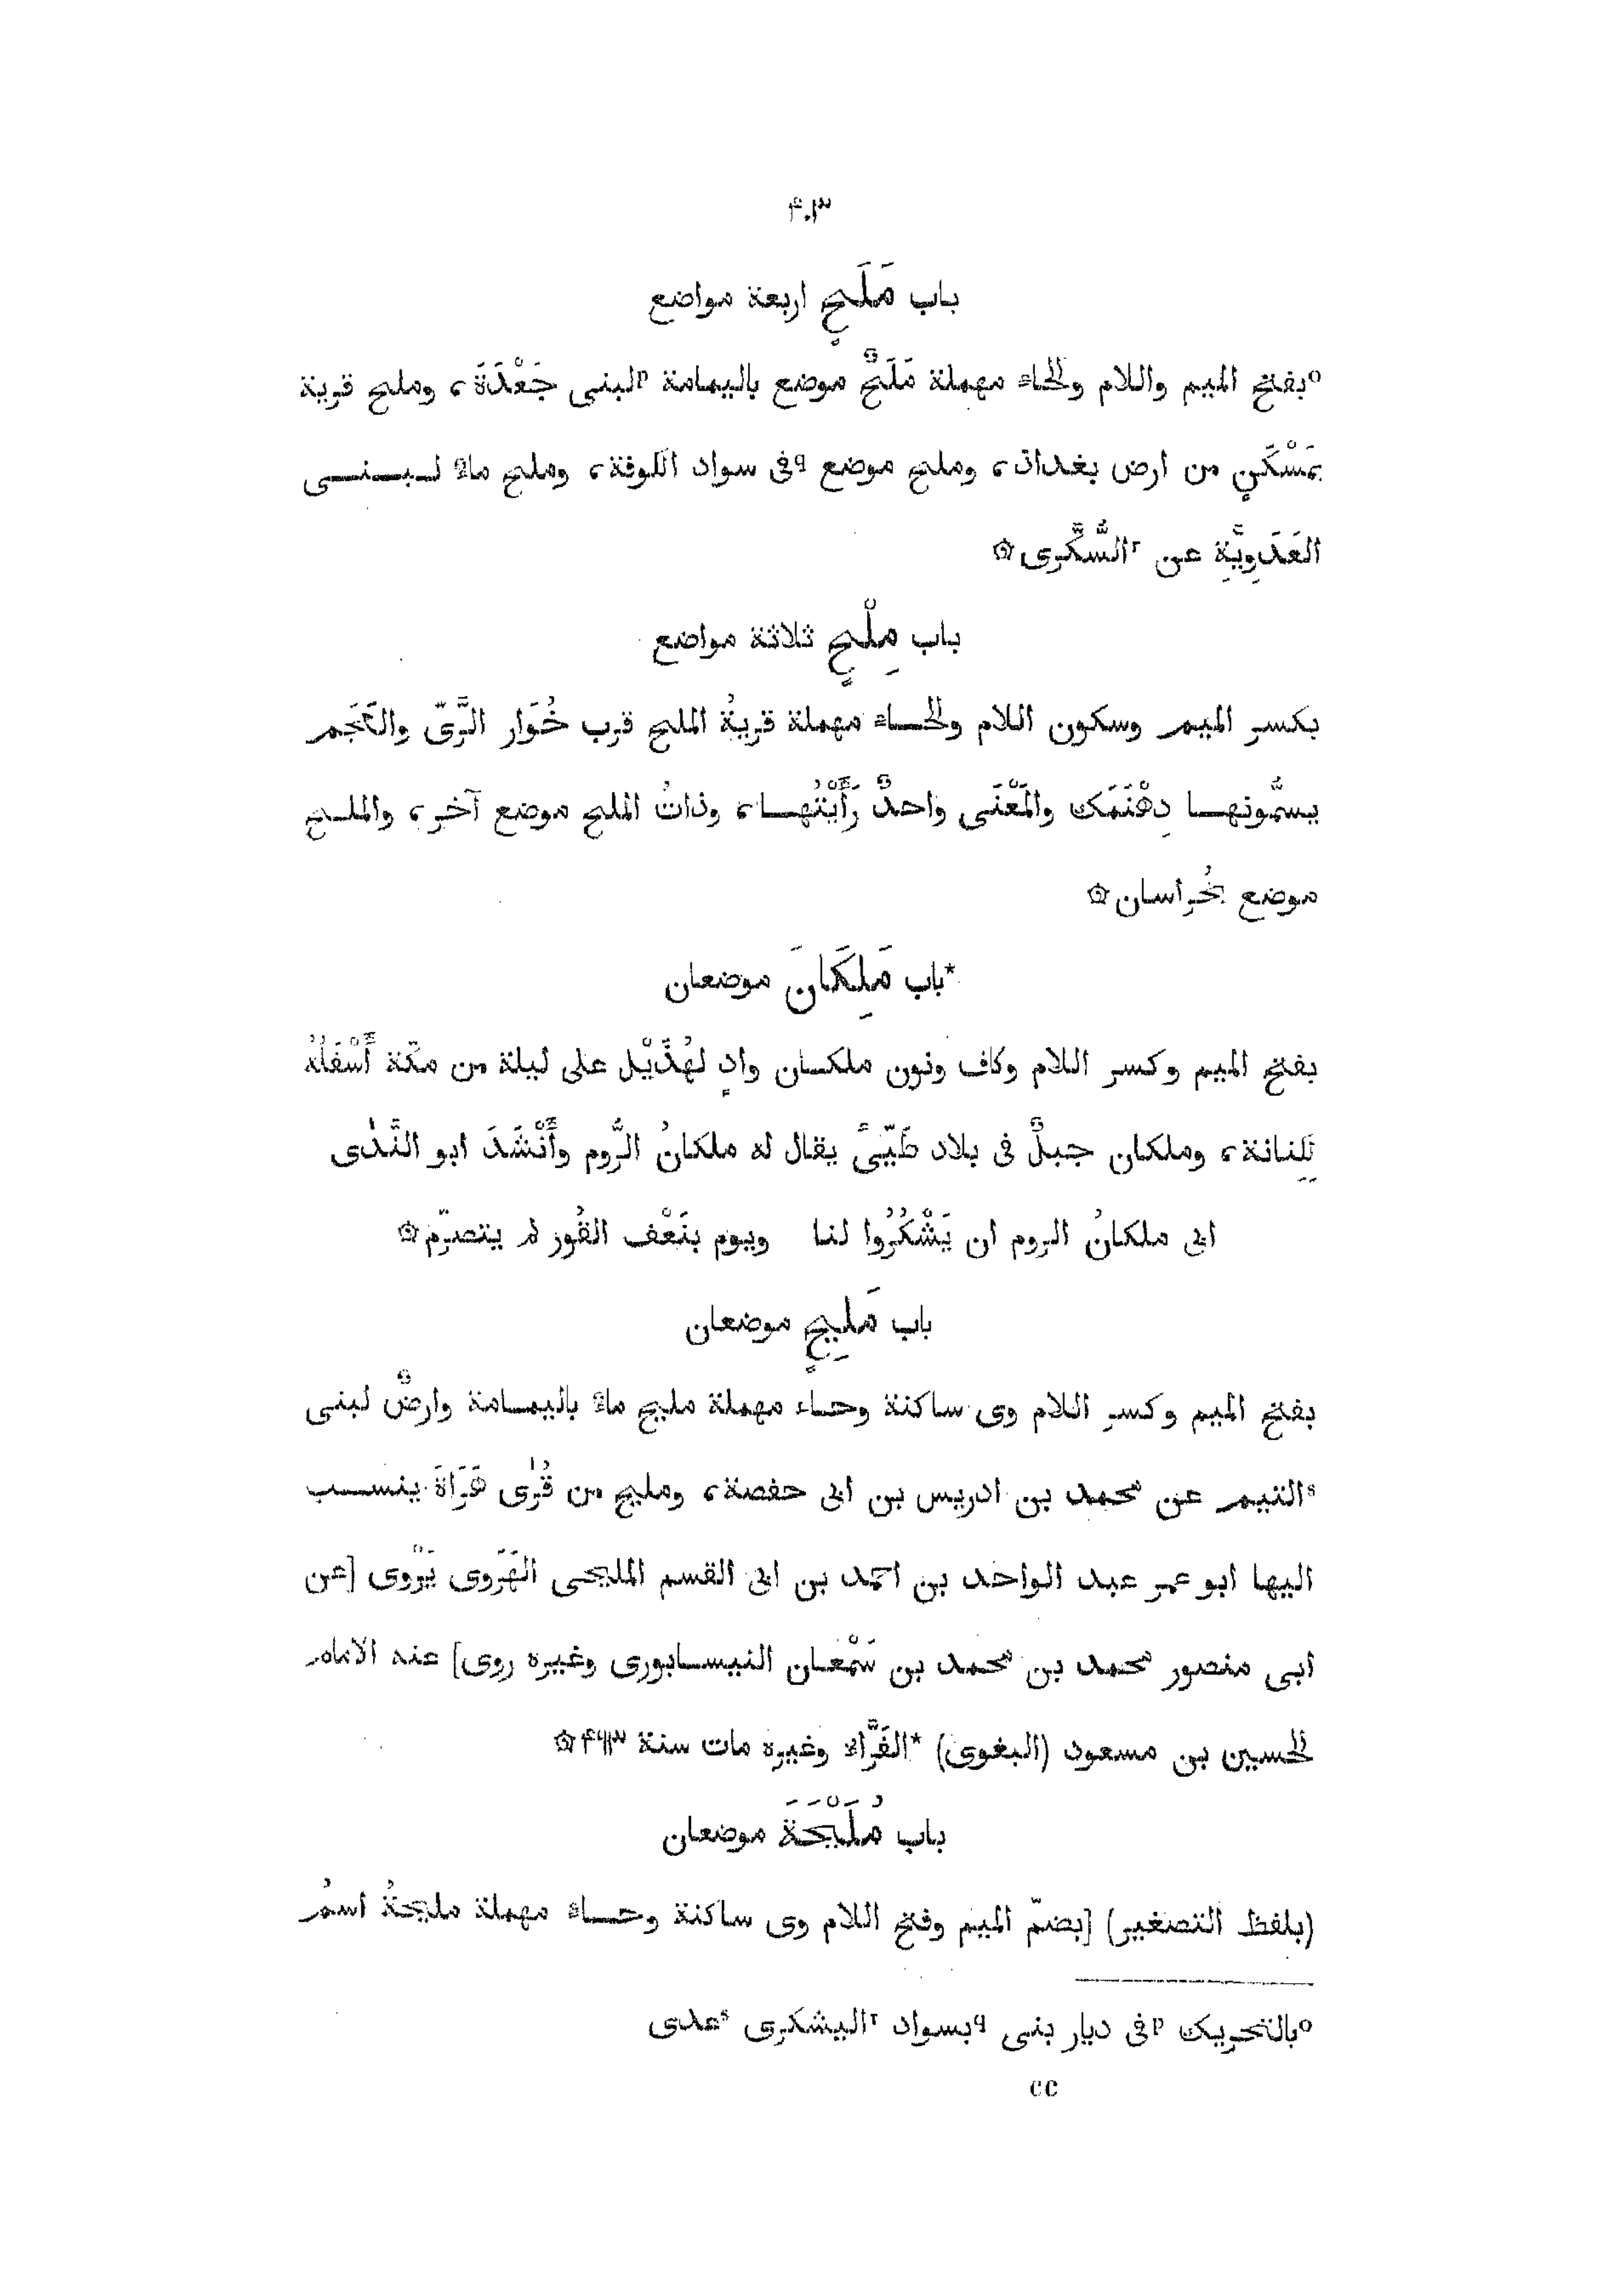 ۴۰۳
باب مَلَحٍ اربعة مواضع
oبفتح الميم واللام والحاء مهملة مَلَحٌ موضع باليمامة pلبنى جَعْدَةَ، وملح قرية
بمَسْكَنٍ من ارض بغداد، وملح موضع qفى سواد الكوفة، وملح ماءٌ لبنى
العَدَوِيَّةِ عن rالسُّكَّرى ۞
باب مِلْحٍ ثلاثة مواضع
بكسر الميم وسكون اللام والحاء مهملة قريةُ الملح قرب خُوَار الرَّىّ والعَجَم
يسمُّونها دِهْنَمَك والمَعْنَى واحدٌ رَأَيْتُها، وذاتُ الملح موضع آخر، والملح
موضع بخُراسان ۞
*باب مَلِكَانَ موضعان
بفتح الميم وكسر اللام وكاف ونون ملكان وادٍ لهُذَيْل على ليلة من مكّة أَسْفَلُهُ
لِكِنانة، وملكان جبلٌ فى بلاد طَيِّىءٍ يقال له ملكانُ الرُّوم وأَنْشَدَ ابو النَّدٰى
ابى ملكانُ الروم ان يَشْكُرُوا لنا ويوم بنَعْف القُور لم يتصرّم ۞
باب مَلِيحٍ موضعان
بفتح الميم وكسر اللام وى ساكنة وحاء مهملة مليح ماءٌ باليمامة وارضٌ لبنى
sالتيم عن محمد بن ادريس بن ابى حفصة، ومليح من قُرٰى هَرَاةَ ينسب
اليها ابو عمر عبد الواحد بن احمد بن ابى القسم المليحى الهَرَوى يَرْوى [عن
ابى منصور محمد بن محمد بن سَمْعان النيسابورى وغيره روى] عنه الامام
الحسين بن مسعود (البغوى) *الفَرَّاء وغيره مات سنة ۴۶۳ ۞
باب مُلَيْحَةَ موضعان
(بلفظ التصغير) [بضمّ الميم وفتح اللام وى ساكنة وحاء مهملة مليحةُ اسمُ
oبالتحريك pفى ديار بنى qبسواد rاليشكرى sعدى
cc